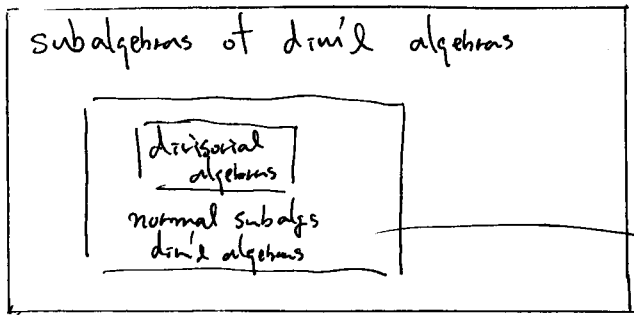 subalgebras of divi'l algebras
divisorial
algebras
normal subalgs
divi'l algebras